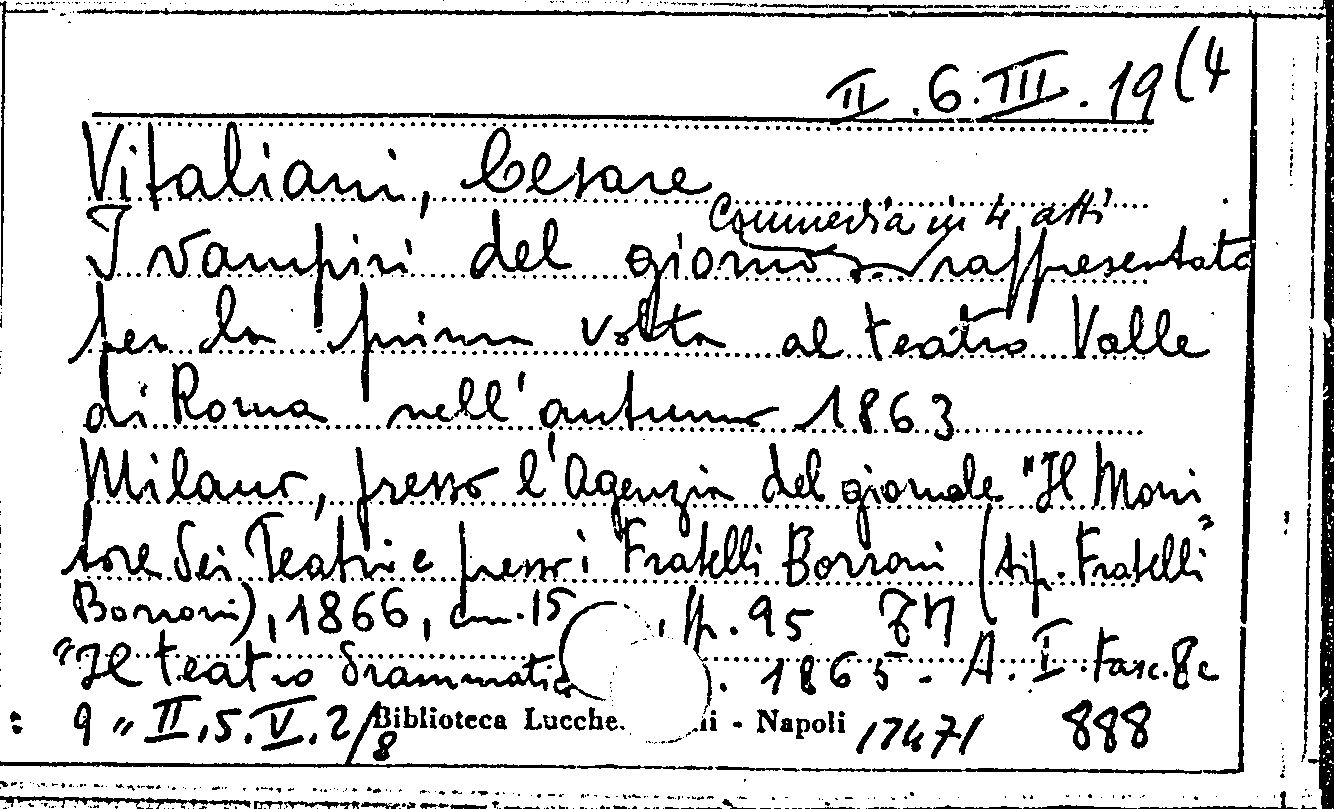 II.6.III.19(4
Vitaliani, Cesare
Commedia in 4 atti
I vampiri del giorno rappresentata
per la prima volta al teatro Valle
di Roma nell'autunno 1863
Milano, presso l'Agenzia del giornale "Il Moni
tore dei Teatri e presso i Fratelli Borroni (tip. Fratelli"
Borroni), 1866, cm. 15 , pp. 95
"Il teatro drammatic . 1865 - A. I. Fasc. 8 e
9" II.5.V.2/8 Biblioteca Lucche. i - Napoli 17471 888